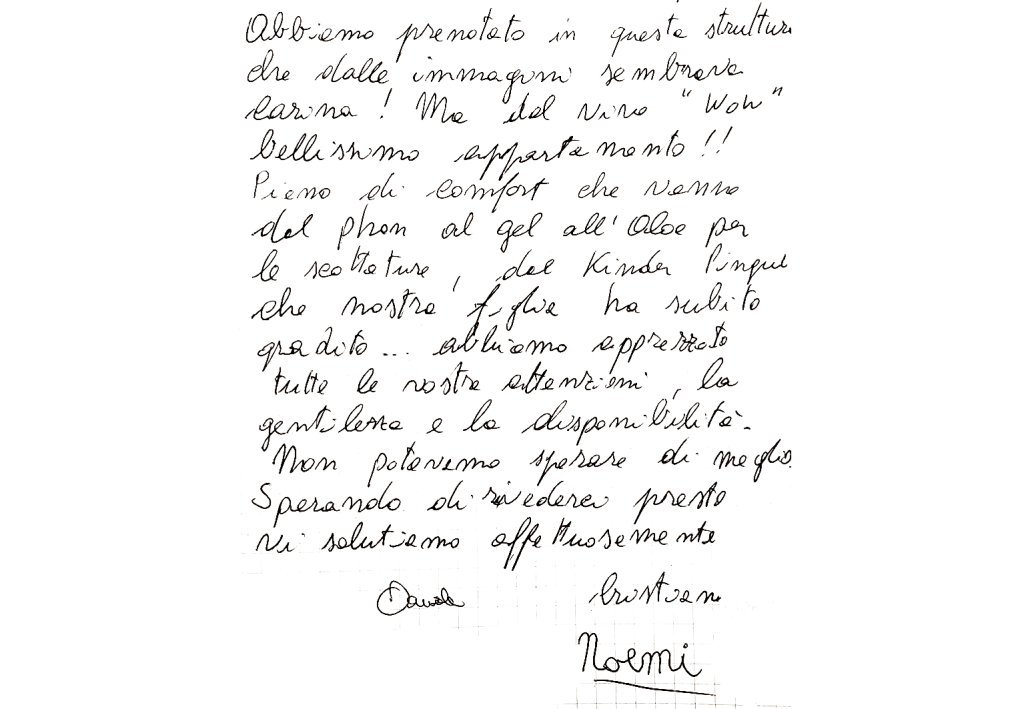 Abbiamo prenotato in questa struttura
che dalle immagini sembrava
carina! Ma dal vivo "Wow"
bellissimo appartamento!!
Pieno di comfort che vanno
dal phon al gel all'Aloe per
le scottature, dal Kinder Pinguì
che nostra figlia ha subito
gradito... abbiamo apprezzato
tutte le vostre attenzioni, la
gentilezza e la disponibilità.
Non potevamo sperare di meglio.
Sperando di rivederci presto
vi salutiamo affettuosamente
Cristian
Noemi